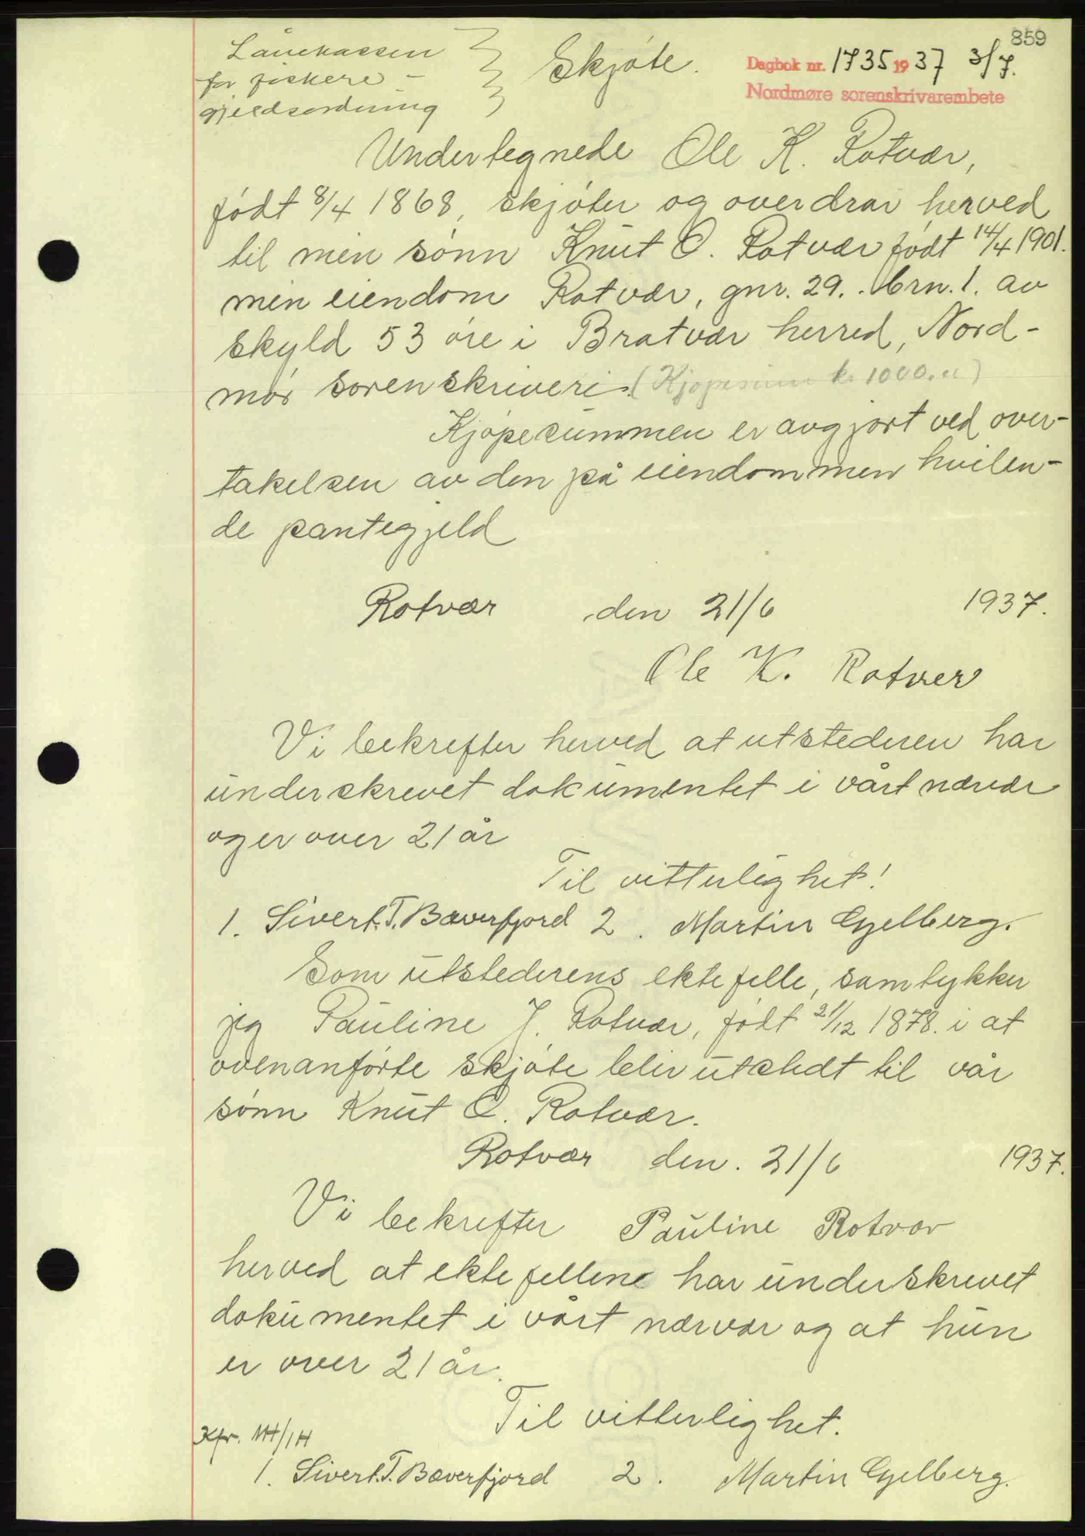 859
Lånekassen
for fiskere -
gjeldsordning
Skjøte.
Dagbok nr. 1735 1937 3/7.
Nordmøre sorenskrivarembete
Undertegnede Ole K. Rotvær,
født 8/4 1868, skjøter og overdrar herved
til min sønn Knut O. Rotvær født 14/4 1901.
min eiendom Rotvær, gnr. 29. brn. 1. av
skyld 53 øre i Bratvær herred, Nord-
mør sorenskriveri. (Kjøpesum kr 1000.00)
Kjøpesummen er avgjort ved over-
takelsen av den på eiendommen hvilen-
de pantegjeld
Rotvær den 21/6 1937.
Ole K. Rotvær
Vi bekrefter herved at utstederen har
underskrevet dokumentet i vårt nærvær
og er over 21 år
Til vitterlighet!
1. Sivert T. Bæverfjord 2. Martin Gjelberg.
Som utstederens ektefelle, samtykker
jeg Pauline J. Rotvær, født 21/12 1878. i at
ovenanførte skjøte blir utstedt til vår
sønn Knut O. Rotvær.
Rotvær den. 21/6 1937.
Pauline Rotvær
Vi bekrefter
herved at ektefellene har underskrevet
dokumentet i vårt nærvær og at hun
er over 21 år.
Til vitterlighet.
Kfr. MH/IH
1. Sivert T. Bæverfjord 2. Martin Gjelberg.